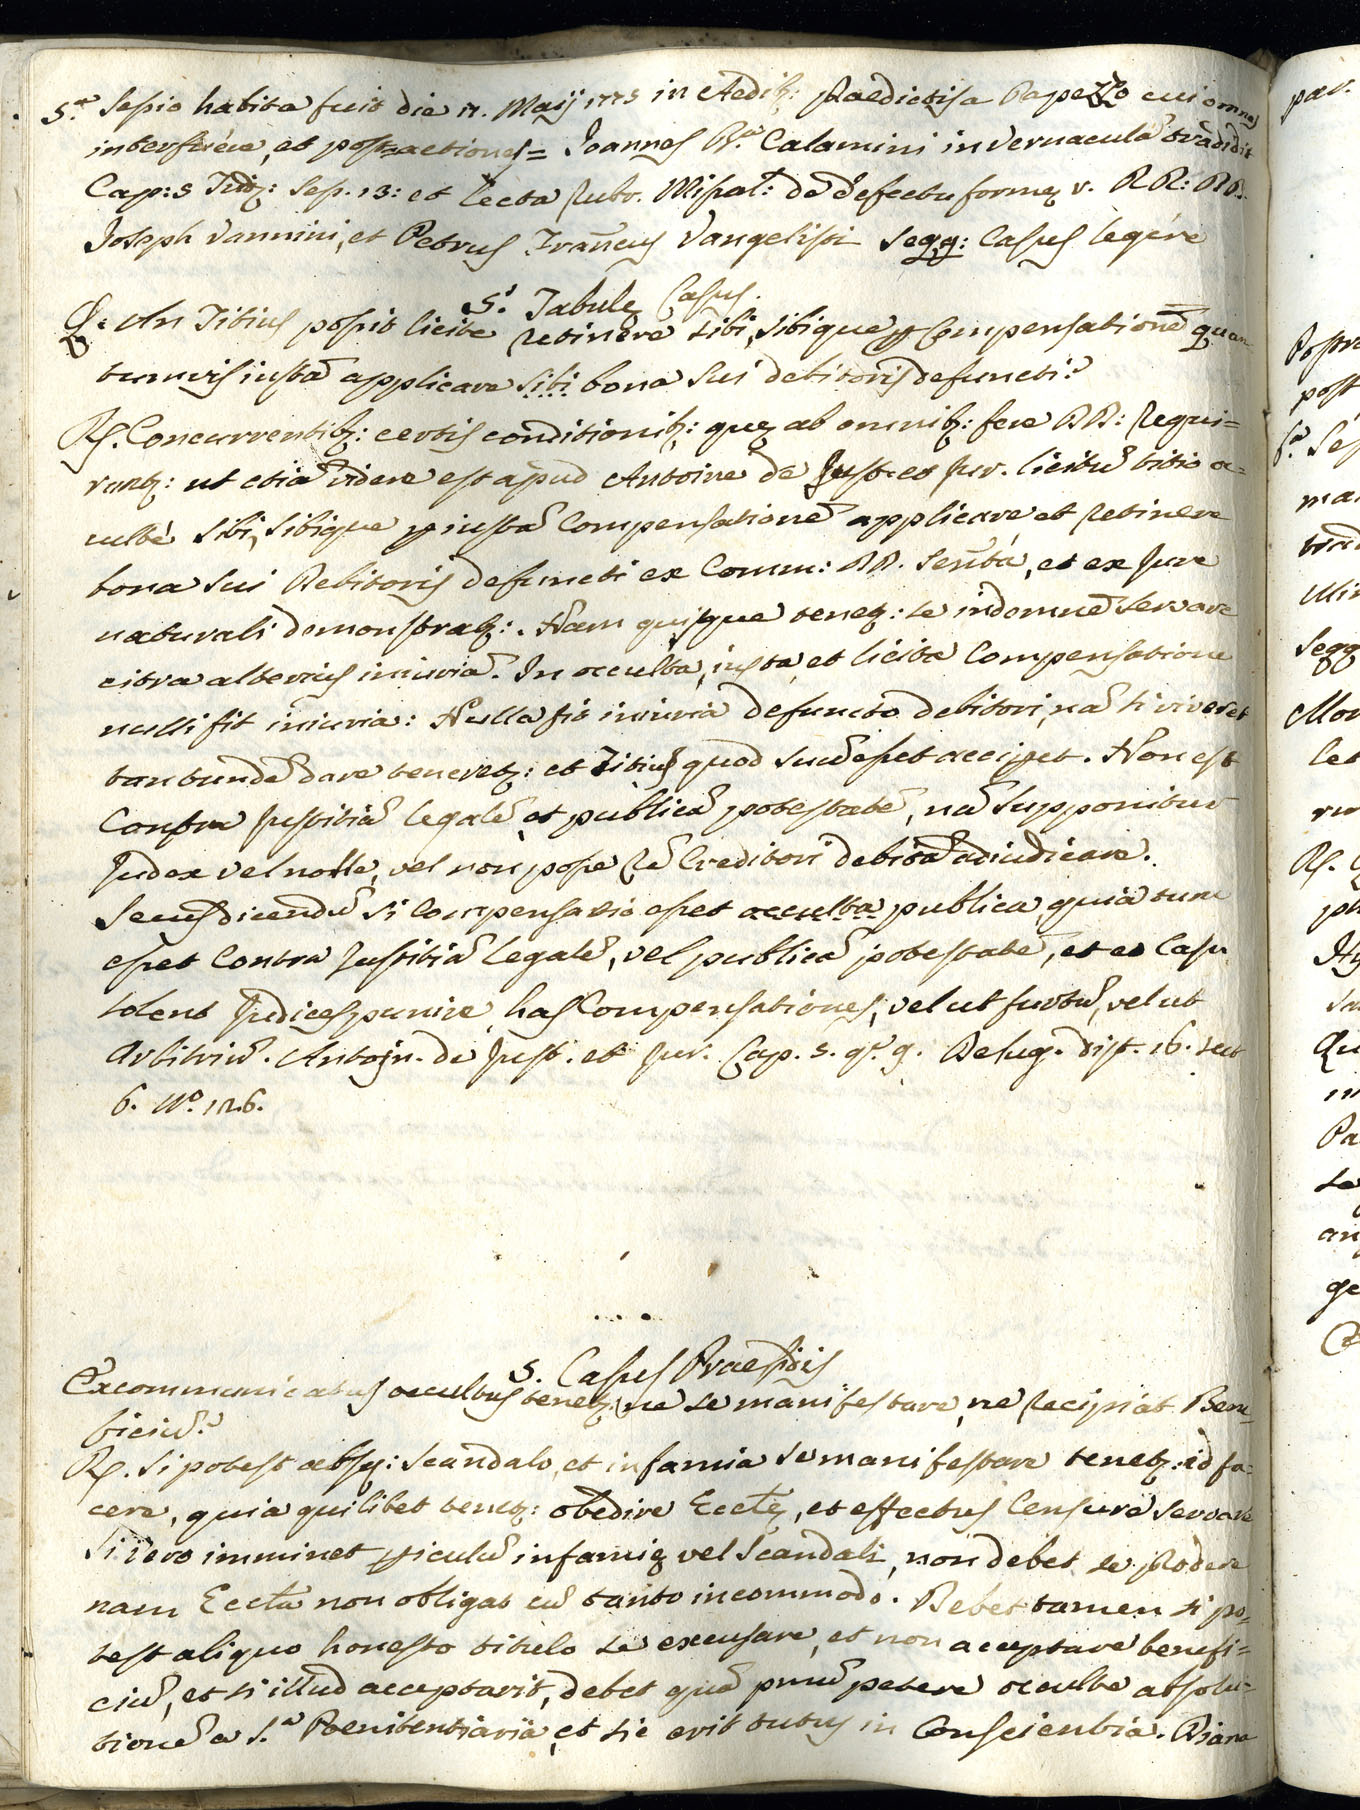 5.ª Sessio habita fuit die 17. Maij 1775 in Aedib: Praedictis a Rapezzo cui omnes
interfuére, et post actiones = Joannes B.ª Calamini in vernaculã tradidit
Cap: 5 Judq: Sess. 13: et lecta Rubr. Missal: de defectu formę v. RR: DD:
Joseph Vannini, et Petrus Franĉus Vangelisti segq: Casus legére
5.s Tabulę Casus.
Q: An Titius possit licite retinere sibi, sibique p Compensationē quan
tumvis justã applicare sibi bona sui debitoris defuncti?
R. Concurrentibq: certis conditionibq: quę ab omnibq: fere DD: requi=
runtq: ut etiã videre est apud Antoine de Just. et Jur. licitũ titio oc=
culte sibi, sibique p justã Compensationē applicare et retinere
bona sui Debitoris defuncti ex Comm: DD. Senttâ, et ex Jure
naturali demonstratq:. Nam quisque tenetq: se indemnē servare
citra alterius iniuriã. In occulta, iusta, et licita Compensatione
nulli fit iniuria: Nulla fit iniuria defuncto debitori, nã si viveret
tantundē dare teneretq: et Titius quod suũ esset accipet. Non est
Contra Justitiã legalē, et publicã potestatē, nã supponitur
Judex vel nolle, vel non posse rē Creditori debitã adiudicare.
Secus dicendũ si Compensatio esset occulta publica, quia tunc
esset Contra Justitiã legalē, vel publicã potestatē, et eo Casu
solent Judices punire has Compensationes, vel ut furtũ, vel ut
Arbitriũ. Antojn. de Just. et Jur. Cap. 5. qr. 9. Delug. disp. 16. sect
6. No. 126.
5. Casus Praesidis
Excommunicatus occultus tenetq: ne se manifestare, ne recipiat Bene
ficiũ?
R. Si potest absq: scandalo, et infamia se manifestare tenetq: id fa=
cere, quia quilibet tenetq: obedire Ecclę, et effectus Censurę servare
Si vero imminet piculũ infamię vel Scandali, non debet se prodere
nam Eccla non obligat cũ tanto incommodo. Debet tamen si po=
test aliquo honesto titulo se excusare, et non acceptare benefi=
ciũ, et si illud acceptarit, debet quã primũ petere occulte absolu=
tionē a S.ª Poenitentiaria, et sic erit tutus in Conscientia. Diana